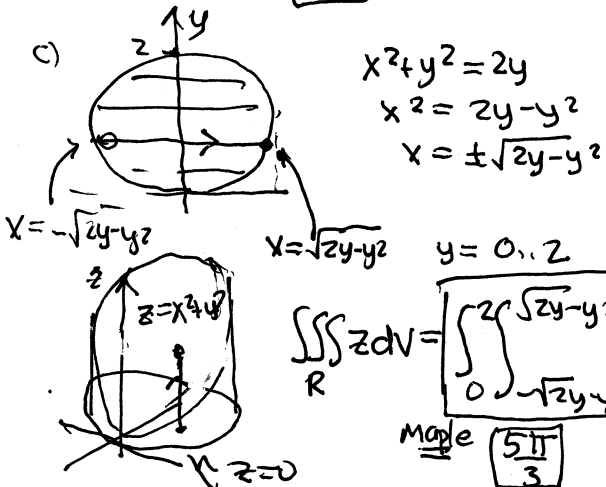 c)
y
2
x²+y²=2y
x²= 2y-y²
x = ±√2y-y²
x=-√2y-y²
x=√2y-y²
y= 0..2
z
z=x²+y²
z=0
∭ zdV = ∫ ∫
R
2 √2y-y²
0 -√2y-y
Maple 5π/3